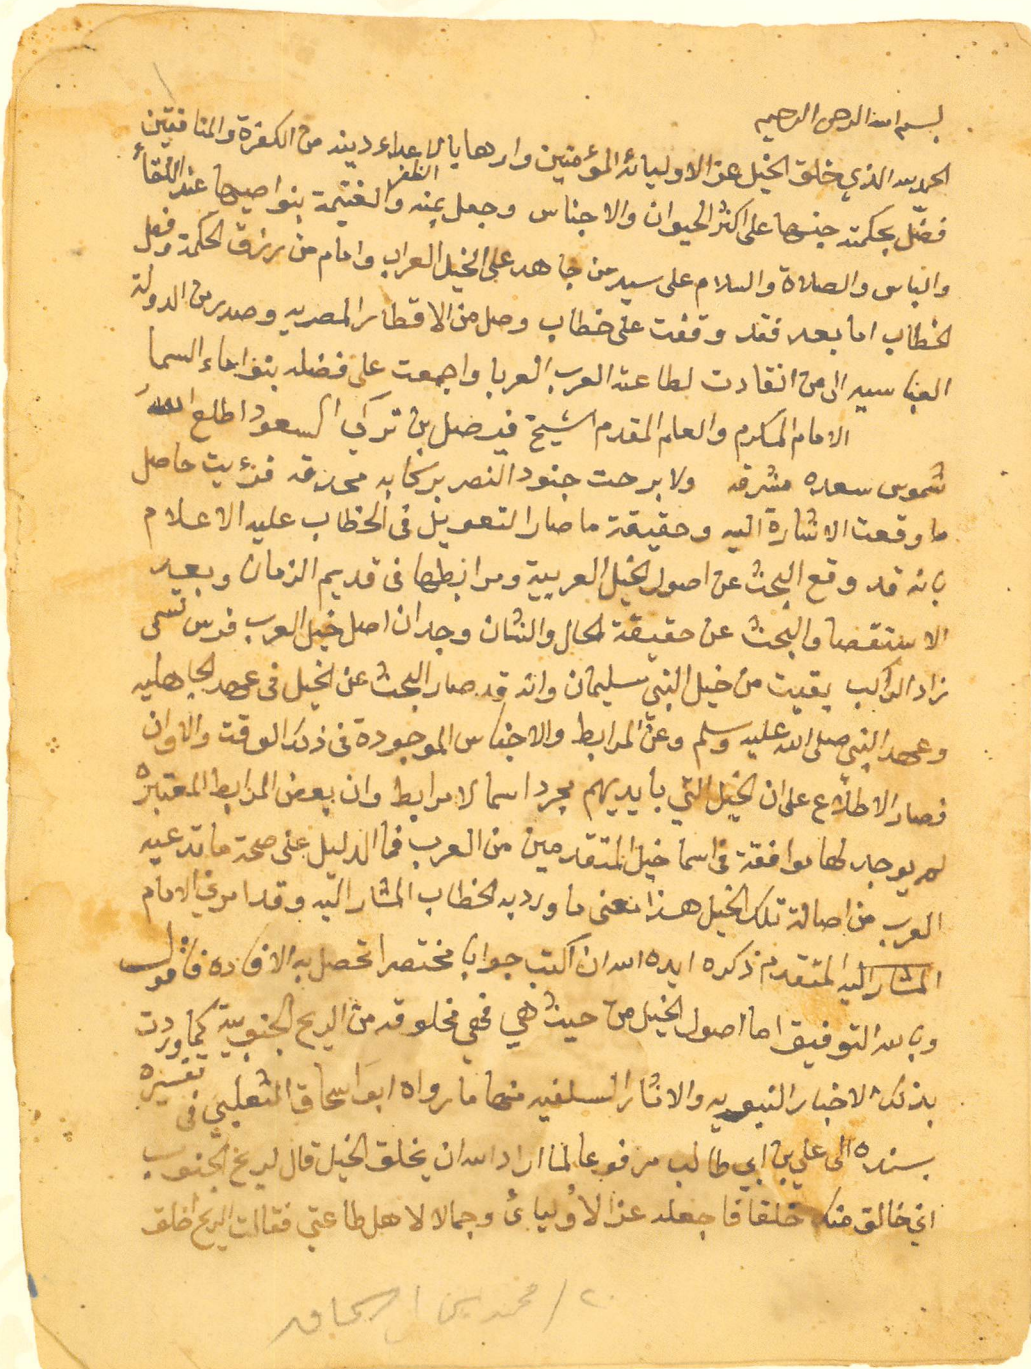 بسم الله الرحمن الرحيم
الحمد لله الذي خلق الخيل عزا لاوليائه المؤمنين وارهابا لاعداء دينه من الكفرة والمنافقين
فضل بحكمته جنسها على اكثر الحيوان والاجناس وجعل بمنه الظفر والغنيمة بنواصيها عند اللقاء
والباس والصلاة والسلام على سيد من جاهد على الخيل العراب وامام من رزق الحكمة وفصل
الخطاب اما بعد فقد وقفت على خطاب وصل من الاقطار المصريه وصدر من الدولة
العباسيه الى من انقادت لطاعته العرب العربا واجمعت على فضله بنوا ماء السما
الامام المكرم والعلم المقدم الشيخ فيصل بن تركي السعود اطلع الله
شموس سعده مشرقه ولا برحت جنود النصر بركابه محدقه فرئيت حاصل
ما وقعت الاشارة اليه وحقيقة ما صار التعويل في الخطاب عليه الاعلام
بانه قد وقع البحث عن اصول الخيل العربية ومرابطها في قديم الزمان وبعد
الاستقصا والبحث عن حقيقة الحال والشان وجد ان اصل خيل العرب فرس تسمى
زاد الراكب بقيت من خيل النبي سليمان وانه قد صار البحث عن الخيل في عهد الجاهليه
وعهد النبي صلى الله عليه وسلم وعن المرابط والاجناس الموجودة في ذلك الوقت والاوان
فصار الاطلاع على ان الخيل التي بايديهم مجرد اسما لا مرابط وان بعض المرابط المعتبره
لم يوجد لها موافقة في اسما خيل المتقدمين من العرب فما الدليل على صحة ما تدعيه
العرب من اصالة تلك الخيل هذا معنى ما ورد به الخطاب المشار اليه وقد امرني الامام
المشار اليه المتقدم ذكره ايده الله ان اكتب جوابا مختصرا تحصل به الافاده فاقول
وبالله التوفيق اما اصول الخيل من حيث هي فهي مخلوقه من الريح الجنوبية كما وردت
بذلك الاخبار النبويه والاثار السلفيه منها ما رواه ابو اسحاق الثعلبي في تفسيره
بسنده الى علي بن ابي طالب مرفوعا لما اراد الله ان يخلق الخيل قال لريح الجنوب
اني خالق منك خلقا فاجعله عزا لاوليائي وجمالا لاهل طاعتي فقالت الريح اخلق
٢٠/ محمد بن اسحاق